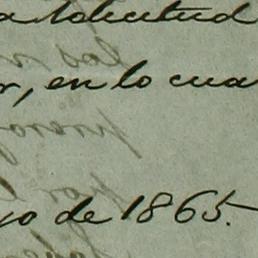 a solicitud
r, en lo cua
yo de 1865.